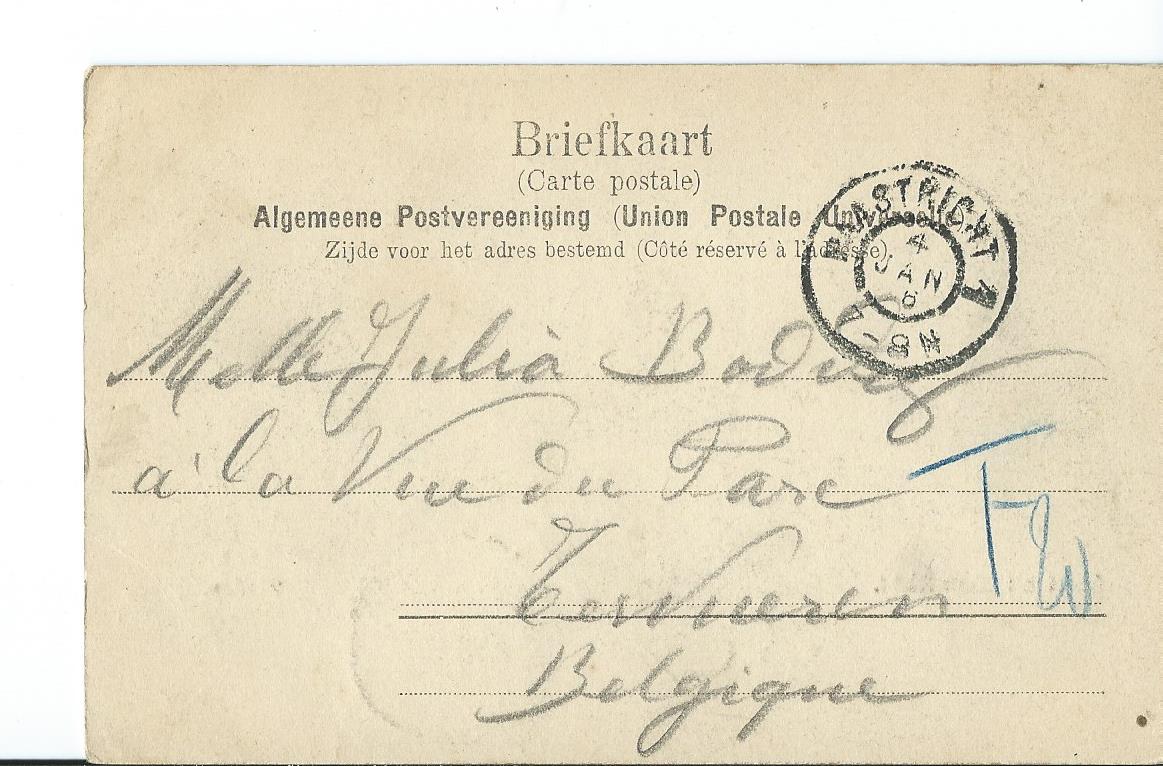 Briefkaart
(Carte postale)
Algemeene Postvereeniging (Union Postale Universelle)
Zijde voor het adres bestemd (Côté réservé à l'adresse)
MAASTRICHT 1
4
JAN
6
8 N
Melle Julia
à la Vue du Parc
Tervueren
Belgique